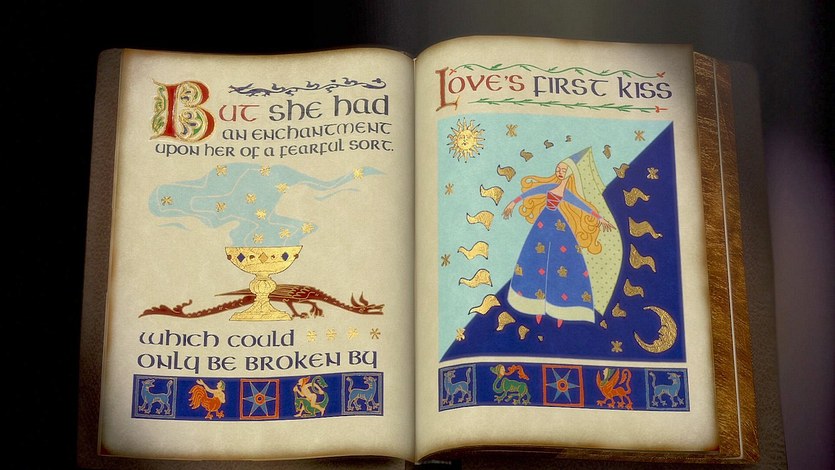 But she had
an enchantment
upon her of a fearful sort.
which could
only be broken by
Love's first kiss